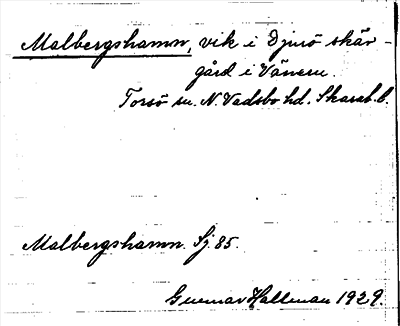 Malbergshamn, vik i Djurö skär-
gård i Vänern.
Torsö sn. N. Vadsbo hd. Skarab. l.
Malbergshamn. Sj. 85.
Gunnar Hallman 1929.